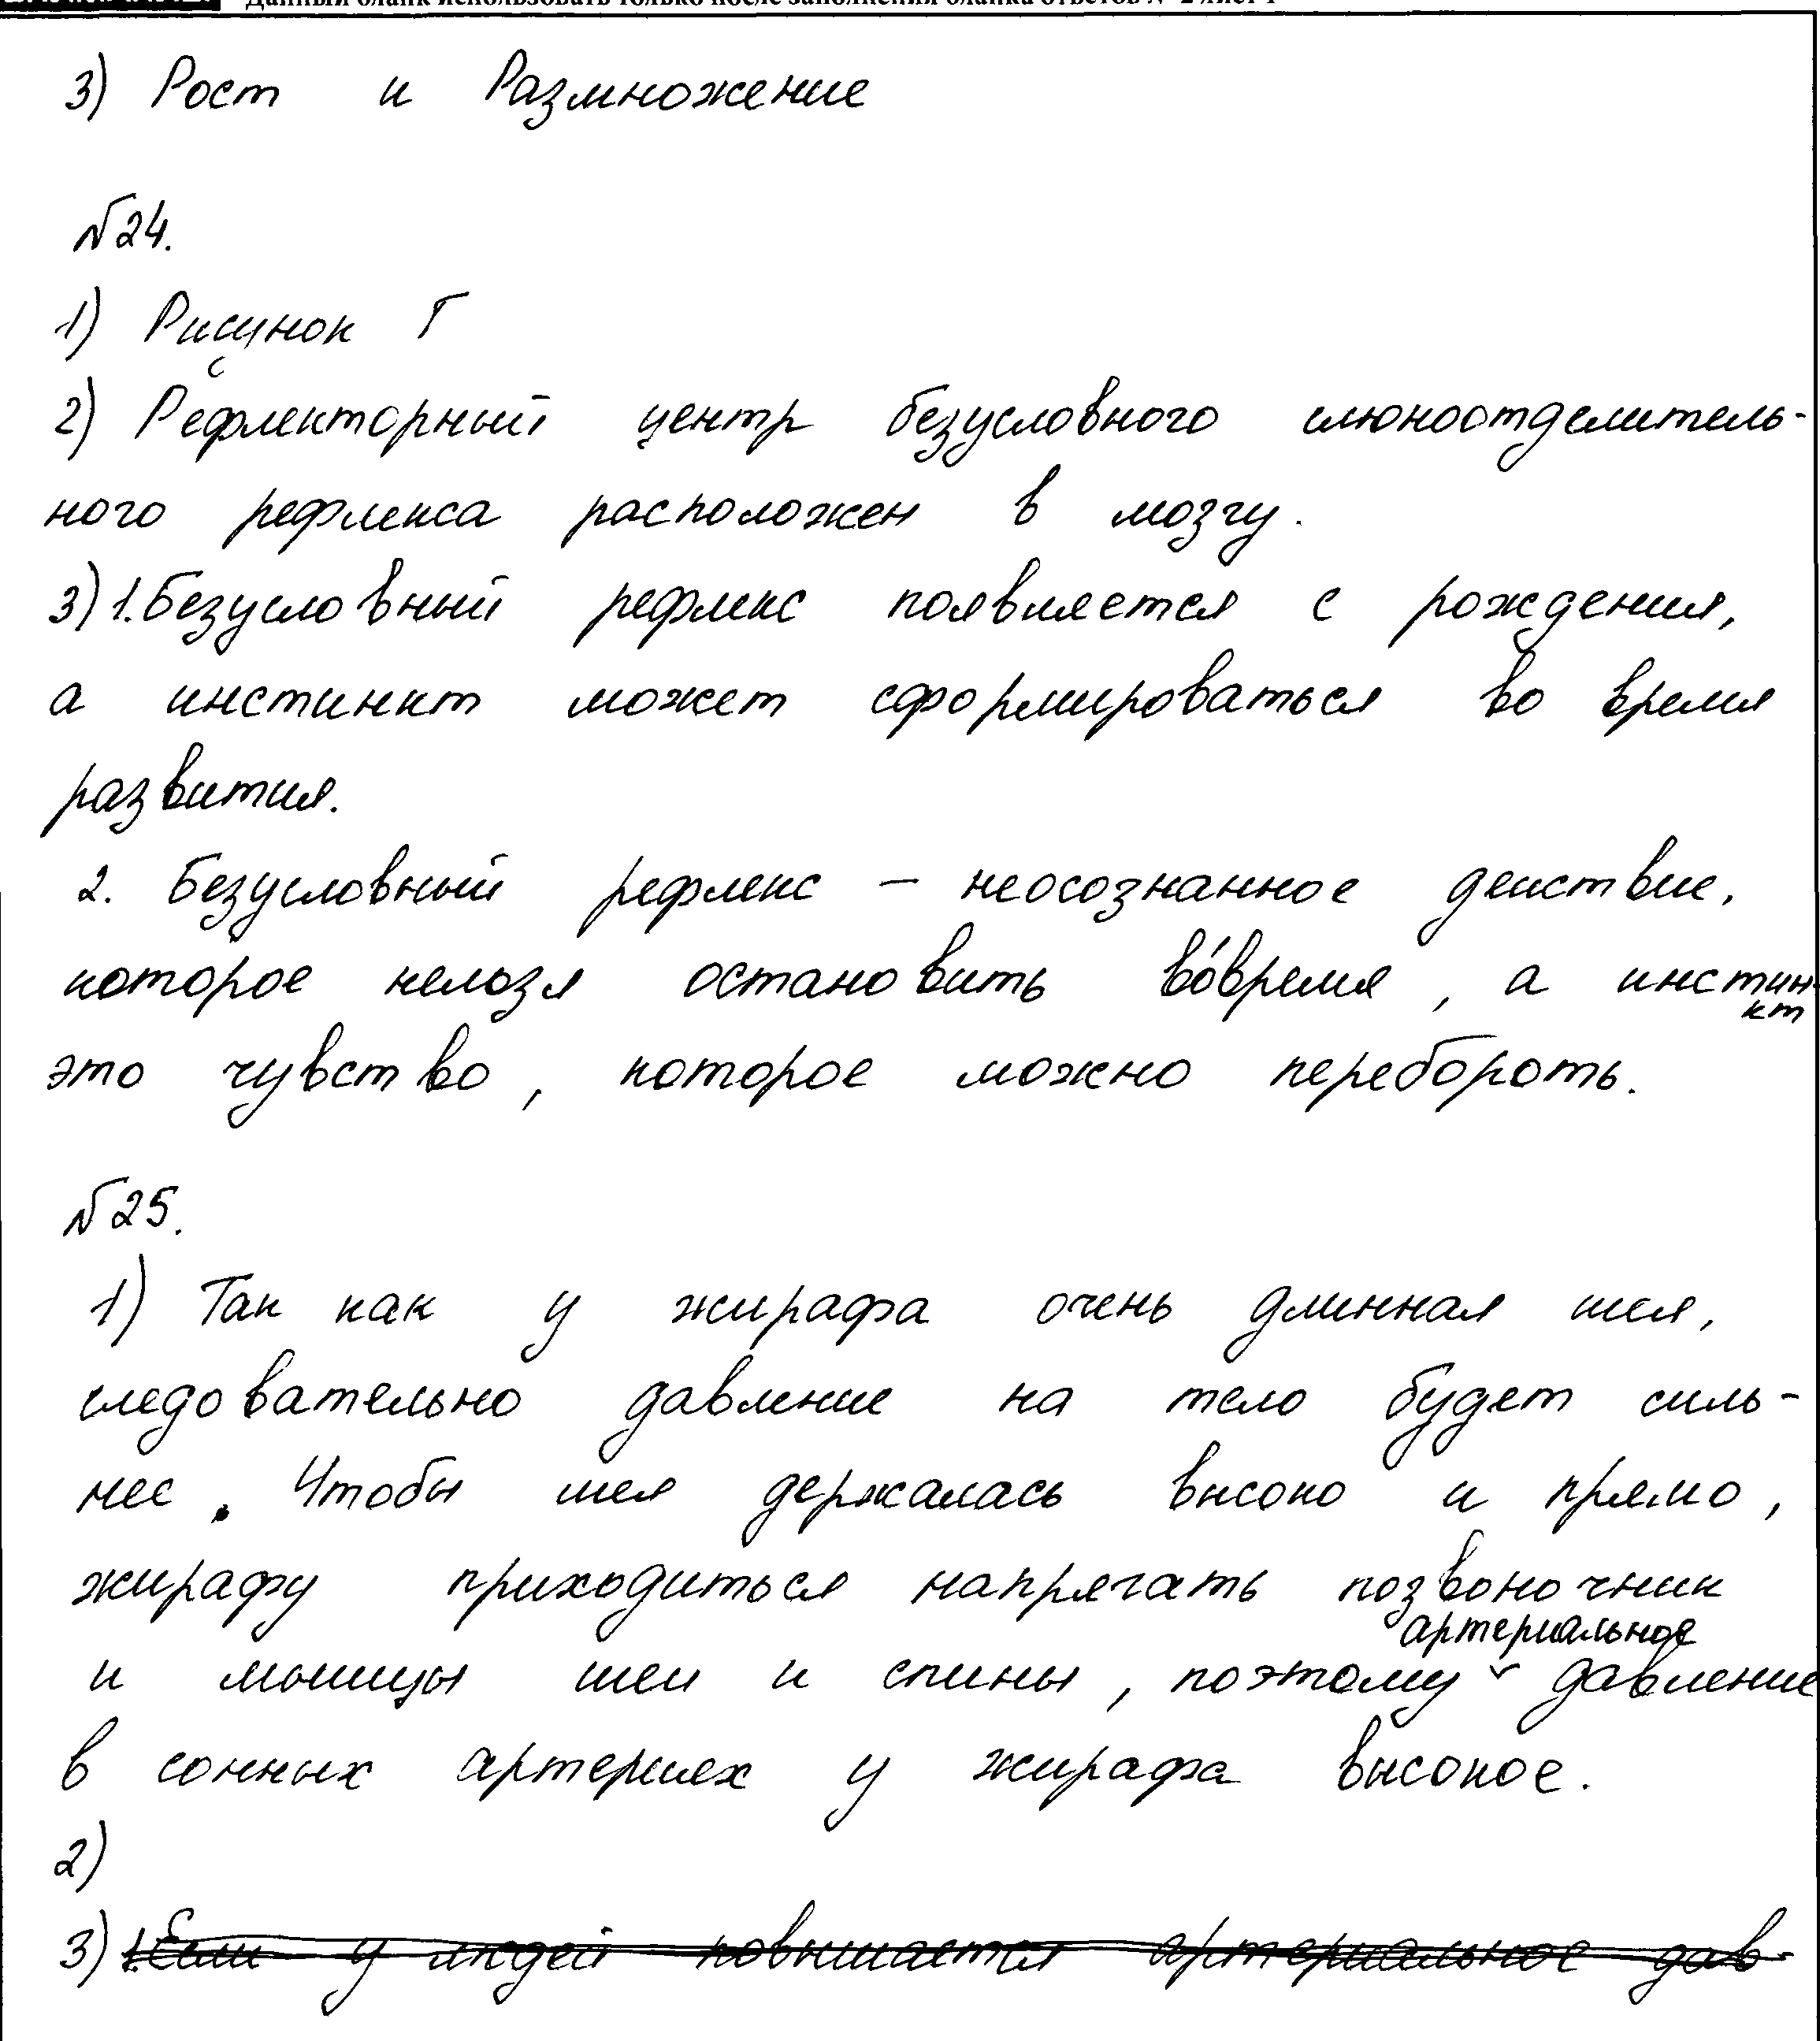 Данный бланк использовать только после заполнения бланка ответов № 2 лист 1
3) Рост и Размножение
№24.
1) Рисунок Г
2) Рефлекторный центр безусловного слюноотделитель-
ного рефлекса расположен в мозгу.
3) 1. Безусловный рефлекс появляется с рождения,
а инстинкт может сформироваться во время
развития.
2. Безусловный рефлекс – неосознанное действие,
которое нельзя остановить во́время, а инстин-
кт
это чувство, которое можно перебороть.
№25.
1) Так как у жирафа очень длинная шея,
следовательно давление на тело будет силь-
нее. Чтобы шея держалась высоко и прямо,
жирафу приходиться напрягать позвоночник
артериальное
и мышцы шеи и спины, поэтому ˅ давление
в сонных артериях у жирафа высокое.
2)
3) 1. Если у людей повышается артериальное дав-